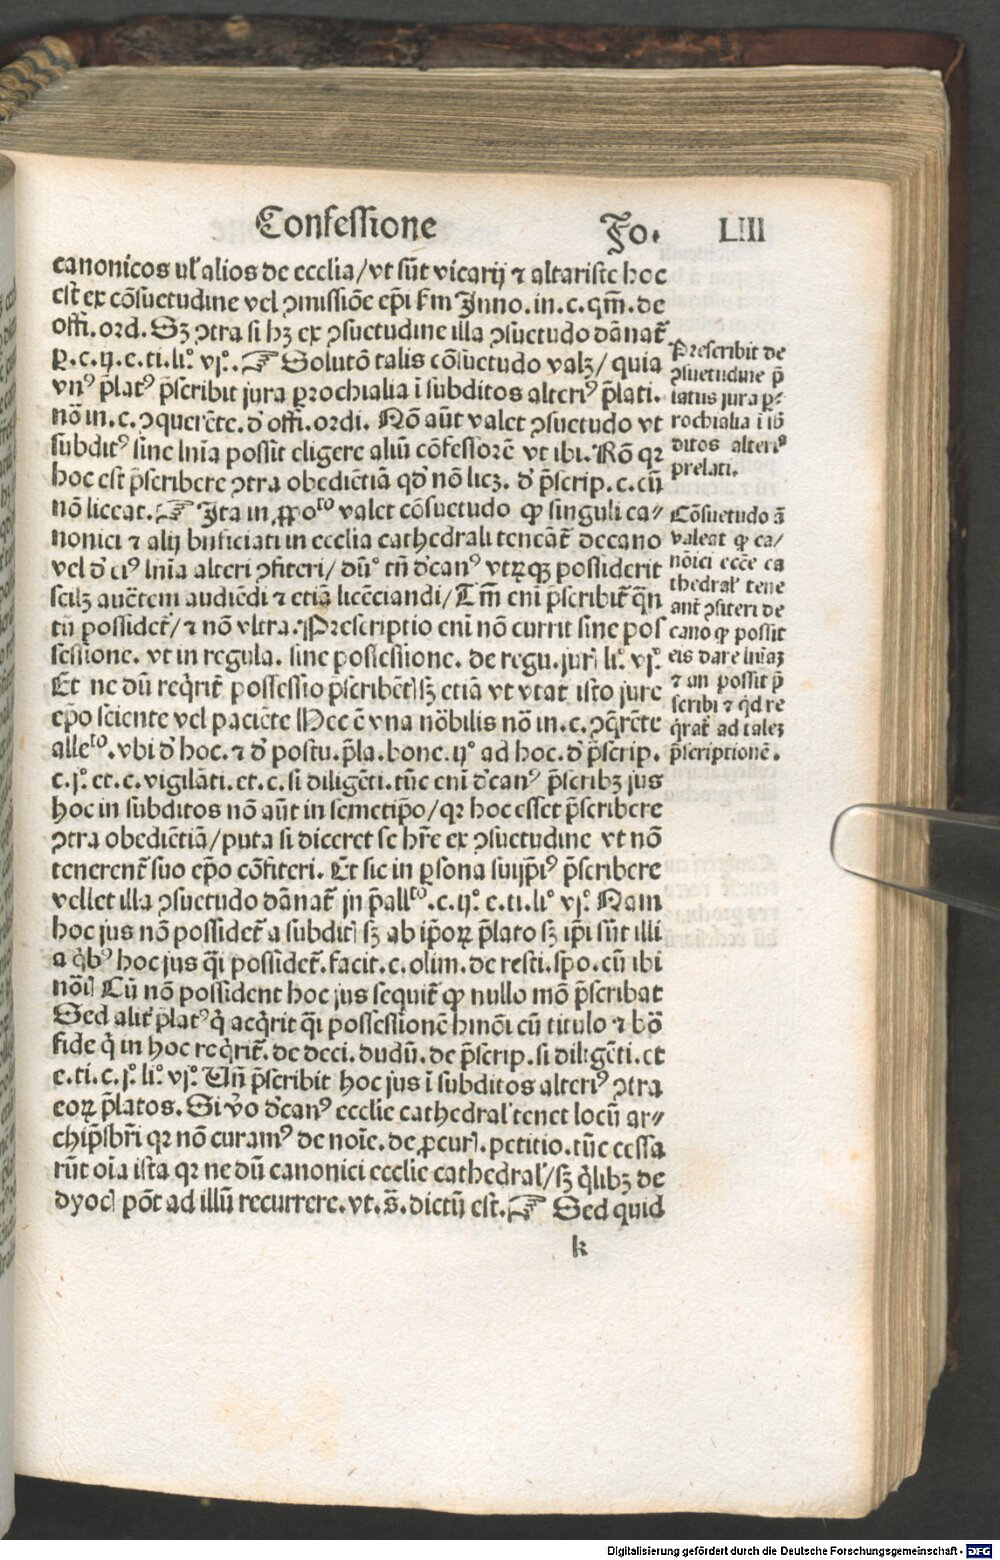 Confessione Fo. LIII
canonicos ul' alios de ecclia/vt sūt vicarij ⁊ altariste hoc
est ex cōsuetudine vel ꝯmissiōe ep̄i fm Inno. in. c. qm̄. de
offi. ord. Sꝫ ꝯtra si hꝫ ex ꝯsuetudine illa ꝯsuetudo dānat᷑
ꝑ. c. ij. e. ti. li.º vjº. ☞ Solutō talis cōsuetudo valꝫ/ quia
vnꝰ p̄latꝰ p̄scribit jura ꝑrochialia ī subditos alteriꝰ p̄lati.
nō in. c. ꝯquerēte. d' offi. ordi. Nō aūt valet ꝯsuetudo vt
subditꝰ sine lnīa possit eligere aliū cōfessorē vt ibi. Rō qꝛ
hoc est p̄scribere ꝯtra obediētiā qd' nō licꝫ. d' p̄scrip. c. cū
nō liceat. ☞ Ita in ꝓpoᵗᵒ valet cōsuetudo ꝙ singuli ca⸗
nonici ⁊ alij bn̄ficiati in ecclia cathedrali teneāt᷑ decano
vel d' eiꝰ lnīa alteri ꝯfiteri/ dū° tn̄ d'canꝰ vtꝛqꝫ possiderit
scilꝫ auc̄tem audiēdi ⁊ etiā licēciandi/ Tm̄ eni p̄scribit᷑ q̄n
tū possidet᷑/ ⁊ nō vltra. Prescriptio eni nō currit sine pos
sessione. vt in regula. sine possessione. de regu. jurꝭ li.º vjº.
Et ne dū reqͥrit᷑ possessio p̄scribētꝭ sꝫ etiā vt vtat᷑ isto jure
ep̄o sciente vel paciēte Hec ē vna nōbilis nō in. c. ꝯq̄rēte
alleᵗᵒ. vbi d' hoc. ⁊ d' postu. p̄la. bone. ijº ad hoc. d' p̄scrip.
c. jº. et. c. vigilāti. et. c. si diligēti. tūc eni d'canꝰ p̄scribꝫ jus
hoc in subditos nō aūt in semetip̄o/ qꝛ hoc esset p̄scribere
ꝯtra obediētiā/puta si diceret se hr̄e ex ꝯsuetudine vt nō
tenerent᷑ suo ep̄o cōfiteri. Et sic in ꝑsona suiip̄iꝰ p̄scribere
vellet illa ꝯsuetudo dānat᷑ jn p̄allᵗᵒ. c. ijº. e. ti. li.º vjº. Nam
hoc jus nō possidet᷑ a subditꝭ sꝫ ab ip̄oꝝ p̄lato sꝫ ip̄i sūt illi
a qͥbꝰ hoc jus q̄i possidet᷑. facit. c. olim. de resti. spo. cū ibi
nōiꝭ Cū nō possident hoc jus sequit᷑ ꝙ nullo mō p̄scribat
Sed alit᷑ p̄latꝰ qͥ acqͥrit q̄i possessionē hmōi cū titulo ⁊ bō
fide qͥ in hoc reqͥrit᷑. de deci. dudū. de p̄scrip. si diligēti. et
e. ti. c. jº. li.º vjº. Vn̄ p̄scribit hoc jus ī subditos alteriꝰ ꝯtra
eoꝝ p̄latos. Si vͦo d'canꝰ ecclie cathedral' tenet locū ar⸗
chip̄sbr̄i qꝛ nō curamꝰ de noīe. de ꝓcurꝭ. petitio. tūc cessa
rūt oīa ista qꝛ ne dū canonici ecclie cathedral'/ sꝫ qͥlibꝫ de
dyocꝭ pōt ad illū recurrere. vt. s̄. dictū est. ☞ Sed quid
k
Prescribit de
ꝯsuetudine p̄
latus jura pꝛ⸗
rochialia ī sb̄
ditos alteriꝰ
prelati.
Cōsuetudo ā
valeat ꝙ ca/
nōici ecce ca
thedral' tene
ant᷑ ꝯfiteri de
cano ꝙ possit
eis dare lnīaꝫ
⁊ an possit p̄
scribi ⁊ qͥd re
qͥrat᷑ ad taleꝫ
p̄scriptionē.
Digitalisierung gefördert durch die Deutsche Forschungsgemeinschaft - DFG